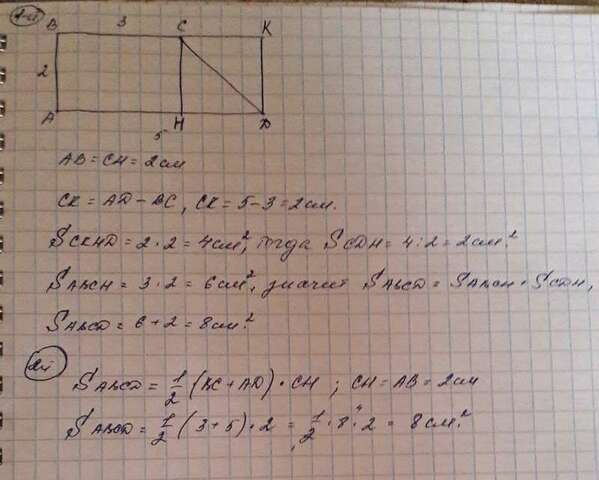 1-й
B 3 C K
2
A H D
5
AB = CH = 2см
CK = AD - BC, CK = 5 - 3 = 2см.
SCKHD = 2 · 2 = 4см², тогда SCDH = 4 : 2 = 2см².
SABCH = 3 · 2 = 6см², значит SABCD = SABCH + SCDH,
SABCD = 6 + 2 = 8см².
2й
SABCD = 1/2 (BC + AD) · CH ; CH = AB = 2см
SABCD = 1/2 (3 + 5) · 2 = 1/2 · 8 · 2 = 8см².